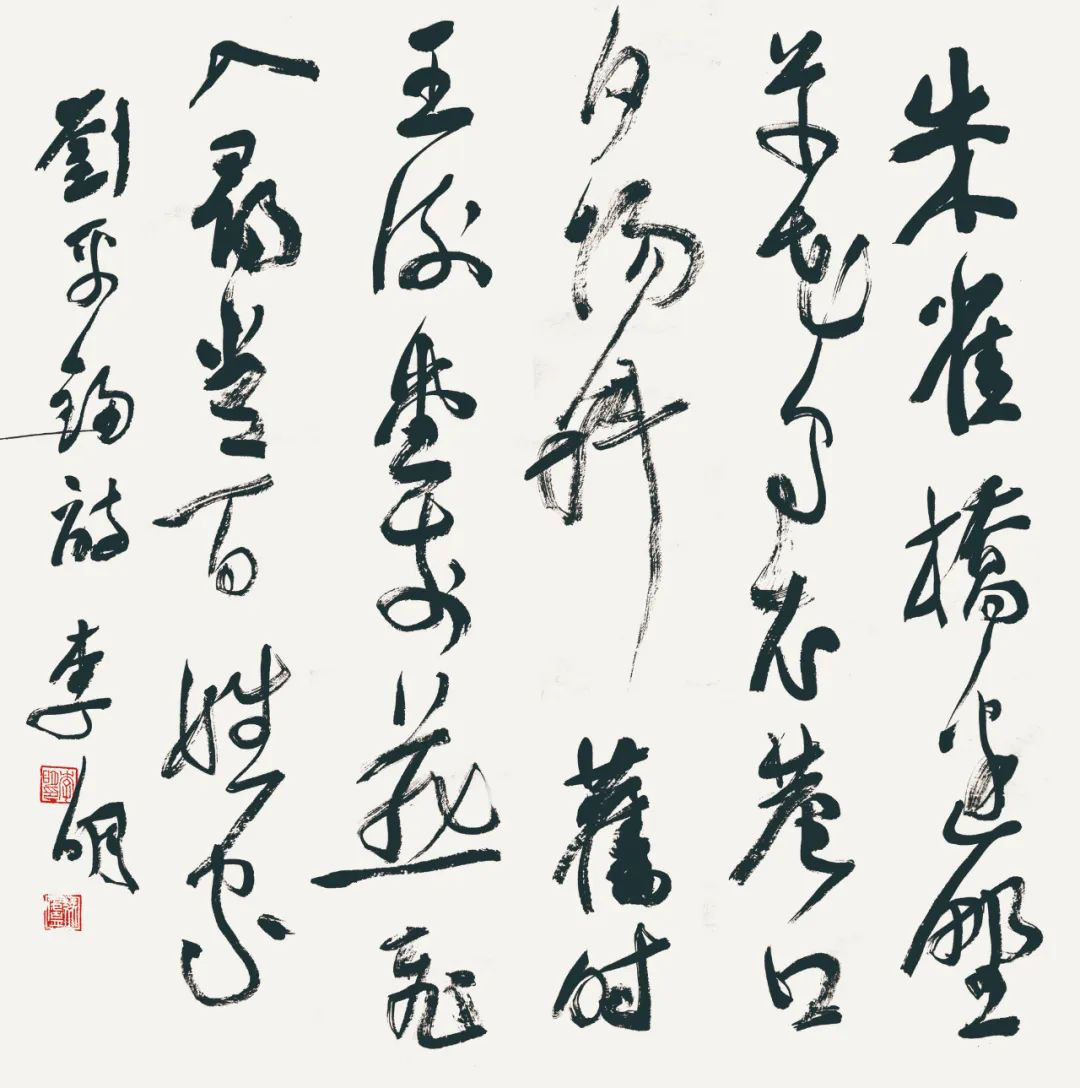 朱雀橋邊野
草花烏衣巷口
夕陽斜舊時
王謝堂前燕飛
入尋常百姓家
劉禹錫詩 李明
李明